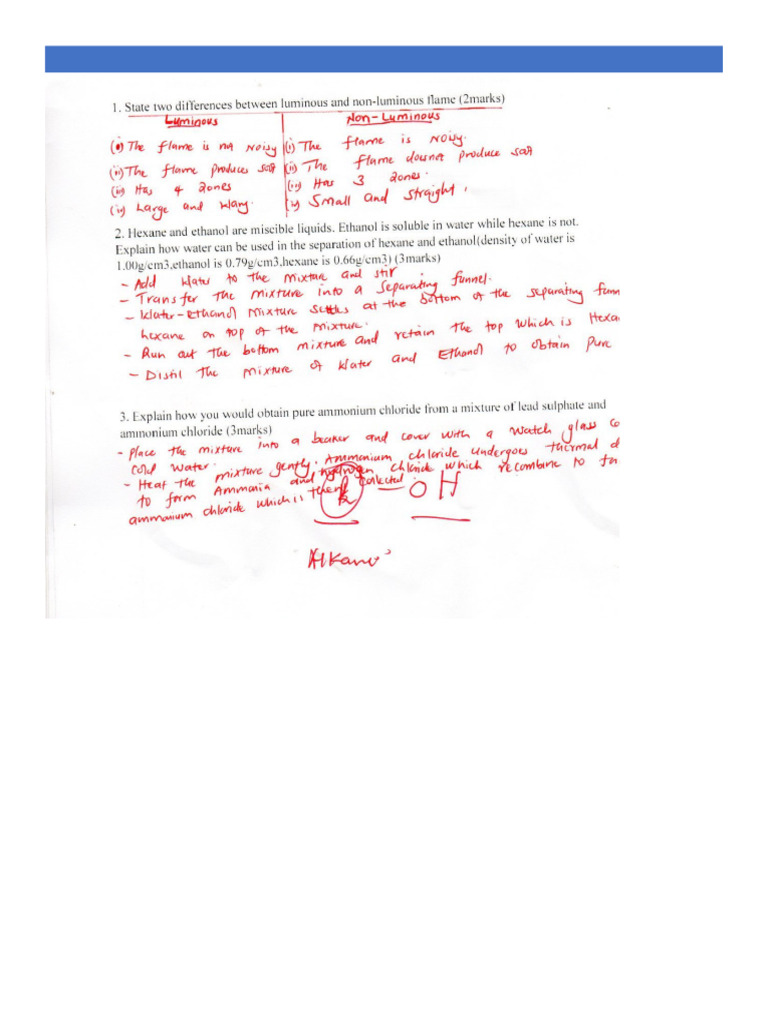 1. State two differences between luminous and non-luminous flame (2marks)
Luminous Non-Luminous
(i) The flame is not noisy (i) The flame is noisy.
(ii) The flame produces soot (ii) The flame doesnot produce soot
(iii) Has 4 zones (iii) Has 3 zones.
(iv) Large and wavy. (iv) Small and straight.
2. Hexane and ethanol are miscible liquids. Ethanol is soluble in water while hexane is not.
Explain how water can be used in the separation of hexane and ethanol(density of water is
1.00g/cm3,ethanol is 0.79g/cm3,hexane is 0.66g/cm3) (3marks)
- Add water to the mixture and stir
- Transfer the mixture into a separating funnel.
- Water-Ethanol mixture settles at the bottom of the separating funn
hexane on top of the mixture.
- Run out the bottom mixture and retain the top which is Hexa
- Distil the mixture of water and Ethanol to obtain pure
3. Explain how you would obtain pure ammonium chloride from a mixture of lead sulphate and
ammonium chloride (3marks)
- Place the mixture into a beaker and cover with a watch glass co
cold water.
- Heat the mixture gently. Ammonium chloride undergoes thermal d
to form Ammonia and hydrogen chloride which recombine to for
ammonium chloride which is then collected.
R — OH
Alkano